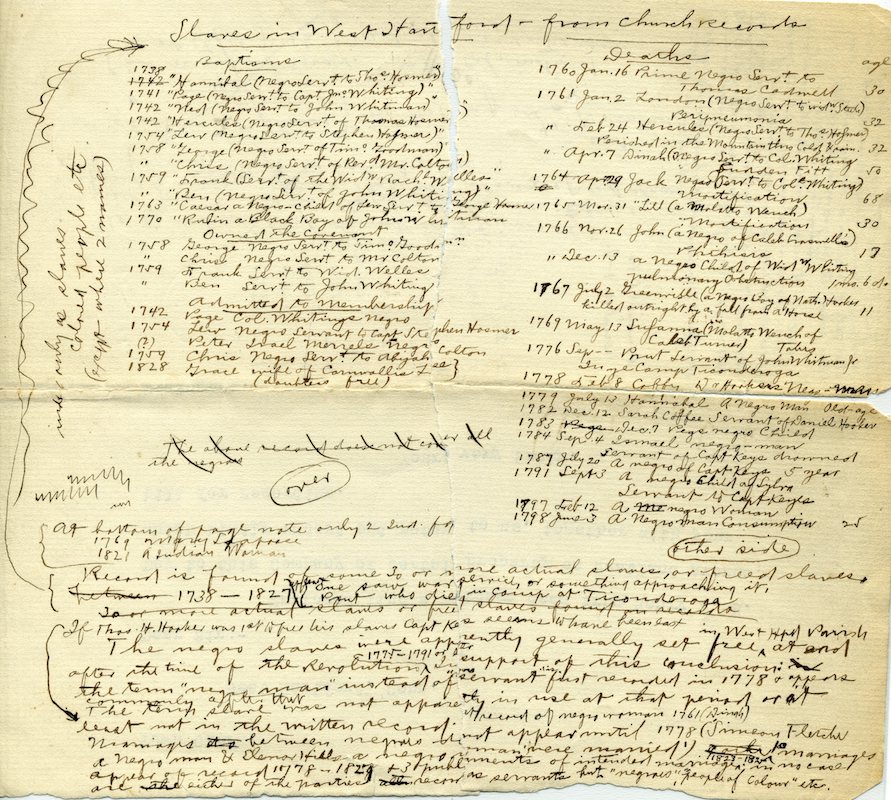 Slaves in West Hartford - from Church records
Baptisms
1738
1742 "Hannibal (Negro Servt to Thos Hosmer"
1741 "Page (Negro Servt to Capt Jno Whiting)"
1742 "Ned (Negro Servt to John Whitman"
1742 "Hercules (Negro Servt of Thomas Hosmer
1754 "Lew (Negro Servt to Stephen Hosmer)"
1758 "George (Negro Servt of Timo Goodman)"
" "Chris (Negro Servt of Revd Mr. Colton)
1759 "Frank (Servt of the Widw Rachl Welles"
" "Ben (Negro Servt of John Whiting)"
1763 "Caesar a Negro child of Lew Servt to George Hosmer
1770 "Rubin a Black Boy of John Whitman
Owned the Covenant
1758 George Negro Servt to Timo Goodman"
" Chris Negro Servt to Mr Colton
1759 Frank Servt to Wid. Welles
" Ben Servt to John Whiting
Admitted to Membership
1742 Page Col. Whitings Negro
1754 Lew Negro Servant to Capt Stephen Hosmer
(?) Peter Israel Merrels Negro
1759 Chris Negro Servt to Abijah Colton
1828 Grace wife of Cornwallis Lee}
(doubtless free)
index only as slaves
Colored people etc.
(except where 2 names)
Deaths
age
1760 Jan. 16 Prime Negro Servt to
Thomas Cadwell 30
1761 Jan. 2 London (Negro Servt to widw Steele)
Peripneumonia 32
" Feb 24 Hercules (Negro Servt to Thos Hosmer)
Perished in the Mountain thro Cold & rain. 32
" Apr. 7 Dinah (Negro Servt to Col. Whiting
Sudden Fitt 50
1764 Apr 29 Jack Negro (Servt to Colo Whiting)
Mortification 68
1765 Mar. 31 "Lill (a Molato Wench)
"Mortification 30
1766 Nov. 26 John (a Negro of Caleb Croswell's)
Phthisis 17
" Dec. 13 a Negro Child of Widw Whiting
pulmonary Obstruction 1 mo. 6 ds
1767 July 2 Greenville (a Negro Boy of Nath. Hooker
killed outright by a fall from a Horse 11
1769 May 13 Susanna (Molatto Wench of
Caleb Turner) Tabes
1776 Sep - - Prut Servant of John Whitman Jr
In ye Camp Ticonderoga
1778 Feb 8 Cobby D Hookers Negro man
1779 July 13 Hannabal A Negro Man Old-age
1782 Dec. 12 Sarah Coffee Servant of Daniel Hooker
1783 Dec. 7 Pegs negro Child
1784 Sept 4 Ismael negro-man
Servant of Capt Keys drowned
1787 July 20 A negro of Capt Keys 5 year
1791 Sept 3 A negro Child of Sylva
Servant to Capt Keyes
1797 Feb 12 A negro Woman
1798 June 3 A Negro man Consumption 25
The above record does not cover all
the negros
over
other side
At bottom of page note only 2 Ind. for
1769
1821 A Indian Woman
Record is found of some 30 or more actual slaves or freed slaves.
between 1738 - 1827 One saw war service, or something approaching it.
Prut who died in camp at Ticonderoga
30 or more actual slaves or freed slaves found on records
If Thos. H. Hooker was 1st to free his slaves Capt Keys seems to have been last in West Htfd Parish
The negro slaves were apparently generally set free, at end
1775-1791 or later
after the time of the Revolution. In support of this conclusion
the term "negro man" instead of "servant" first recorded in 1778 & appears
commonly after that
The term slave was not apparently in use at that period or at
least not in the written record. 1st record of negro woman 1761 (Dinah)
Marriages between negroes do not appear until 1778 (Simeon Fletcher
a Negro man & Elenor Hills a negro woman "were married") marriages
appear of record 1778 - 1829 & 3 publishments of intended marriage; in no case
are either of the parties recorded as servants but "negroes" "people of Colour" etc.